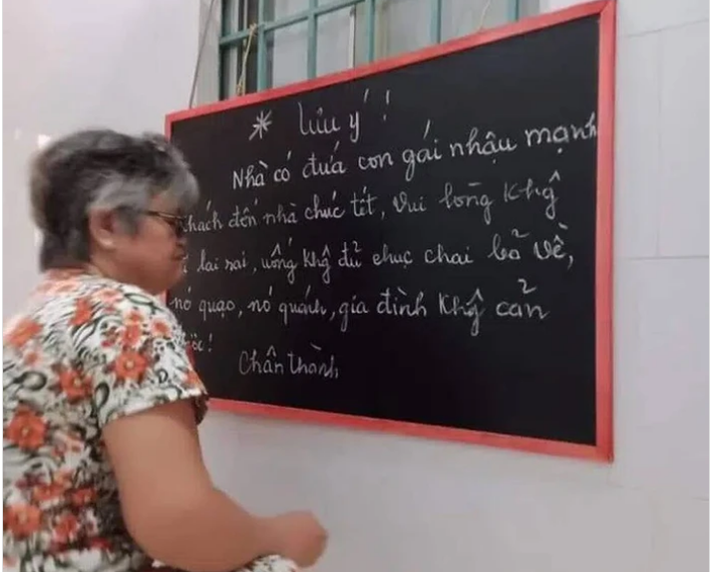 * Lưu ý!
Nhà có đứa con gái nhậu mạnh
khách đến nhà chúc tết, vui lòng Khg
lai rai, uống khg đủ chục chai bỏ về,
nó quạo, nó quánh, gia đình khg cản
Chân thành